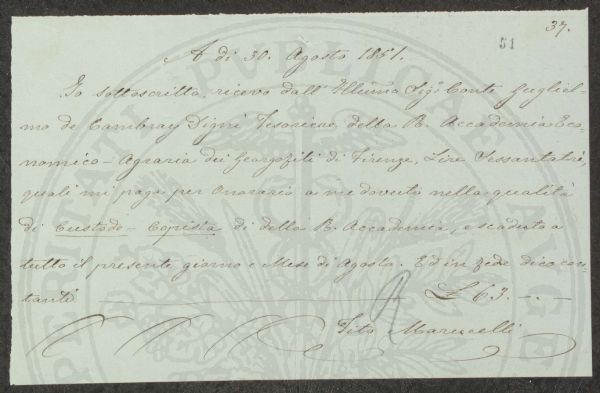 37.
51
A dì 30. Agosto 1851.
Io sottoscritto ricevo dall'Illmo Sigr Conte Gugliel-
mo de Cambray Digny Tesoriere della R. Accademia Eco-
nomico-Agraria dei Georgofili di Firenze, Lire Sessantatrè,
quali mi paga per Onorario a me dovuto nella qualità
di Custode-Copista di detta R. Accademia, e scaduto a
tutto il presente giorno e Mese di Agosto. Ed in fede dico con-
tanti £ 63. -. -
Tito Marucelli
PROSPERITATI PUBLICAE AVGE